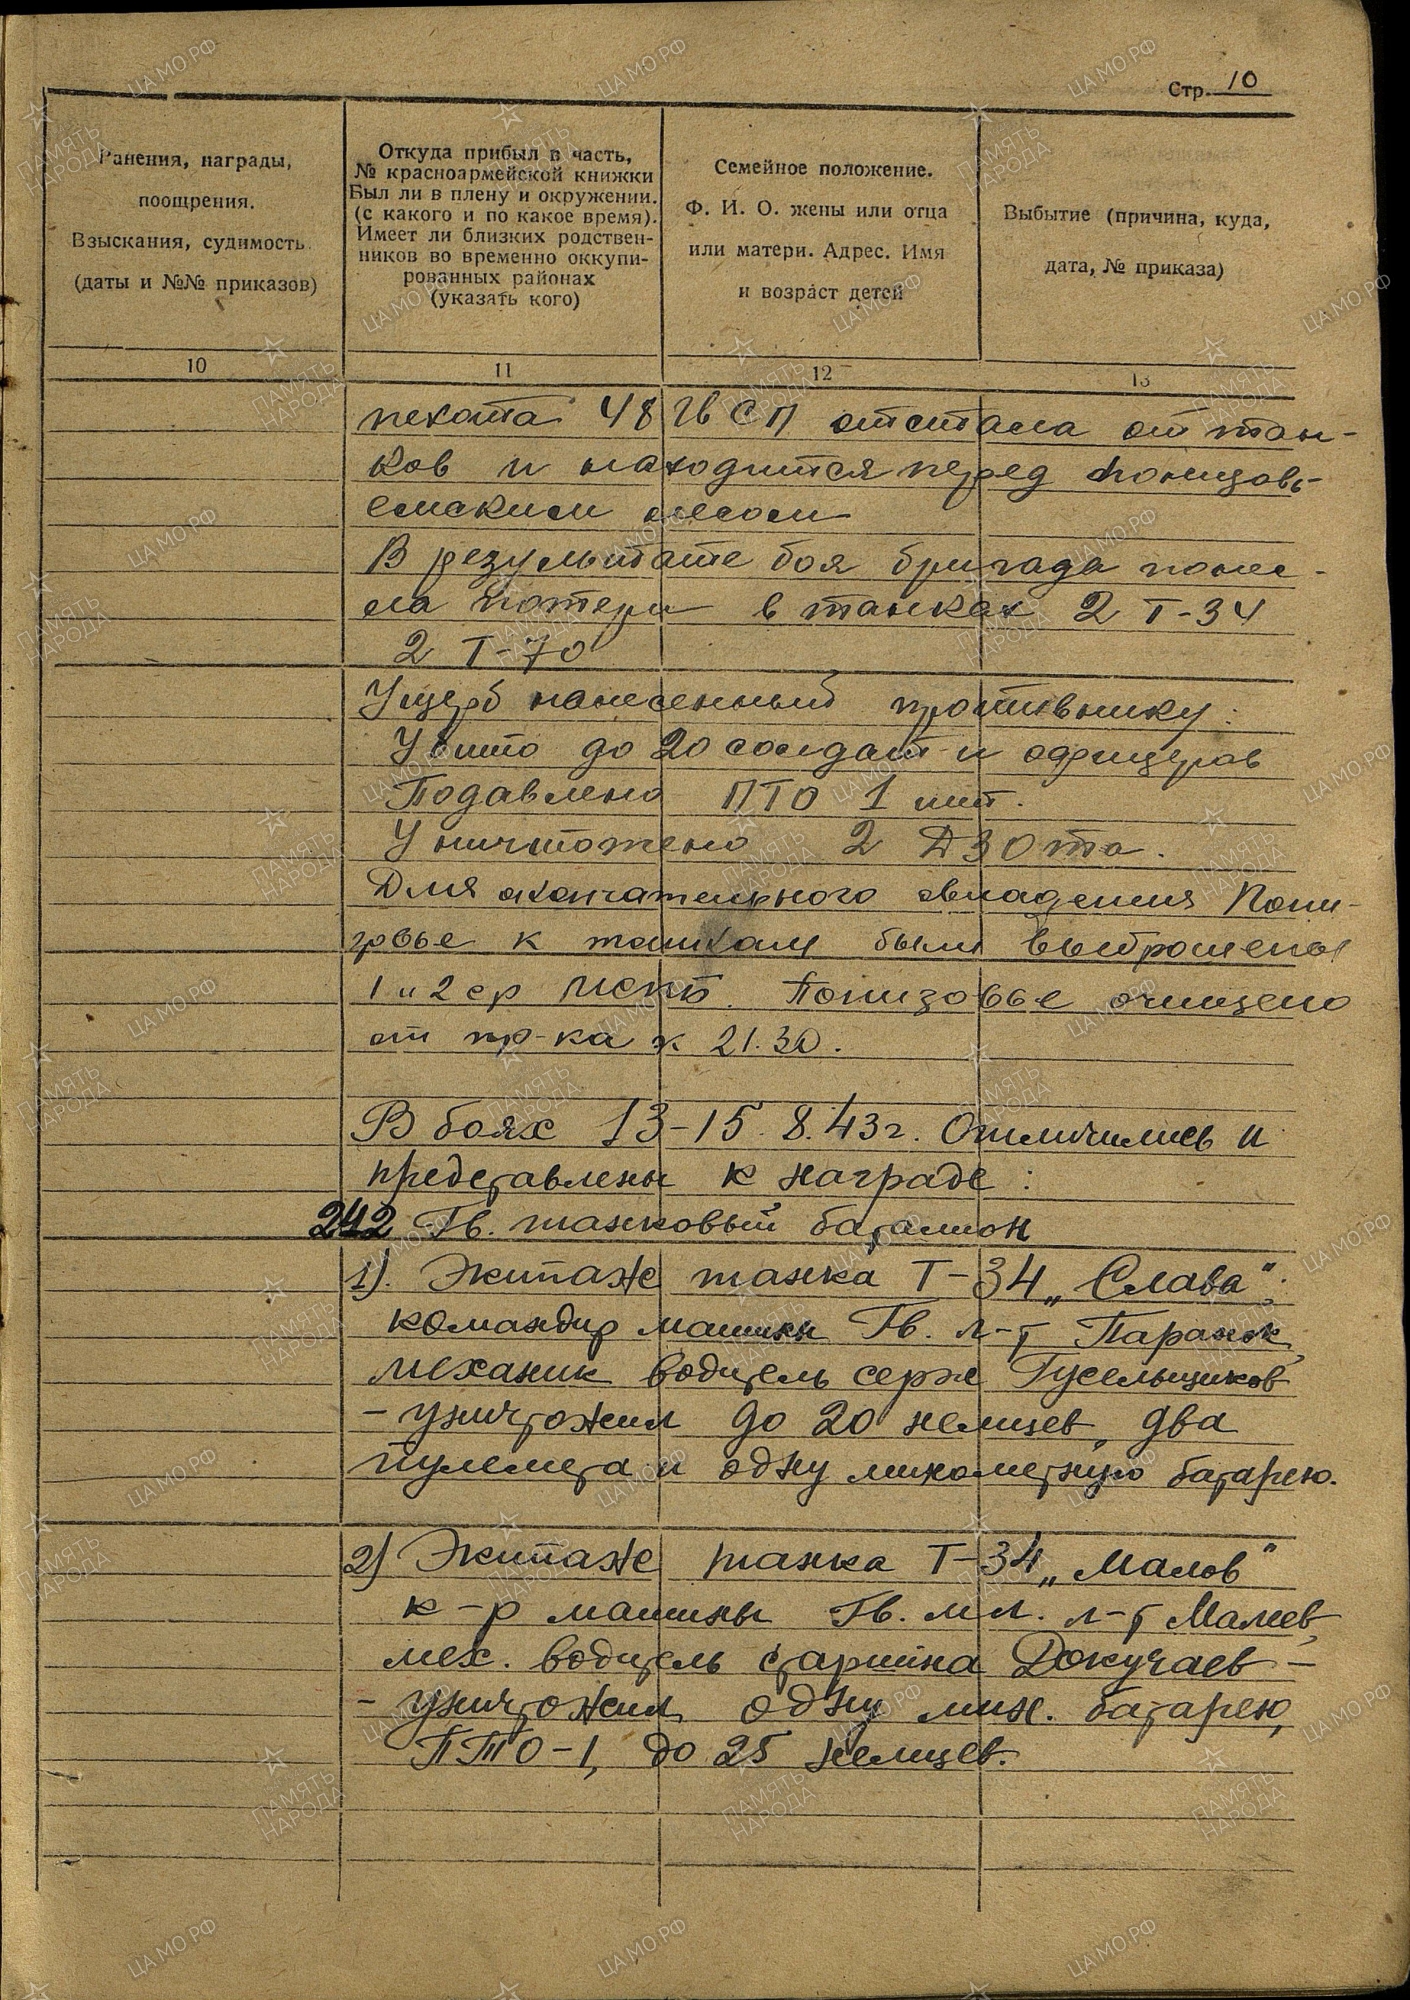 Стр. 10
Ранения, награды,
поощрения.
Взыскания, судимость
(даты и №№ приказов)
Откуда прибыл в часть,
№ красноармейской книжки
Был ли в плену и окружении.
(с какого и по какое время).
Имеет ли близких родствен-
ников во временно оккупи-
рованных районах
(указать кого)
Семейное положение.
Ф. И. О. жены или отца
или матери. Адрес. Имя
и возраст детей
Выбытие (причина, куда,
дата, № приказа)
10 11 12 13
пехота 48 Гв СП отстала от тан-
ков и находится перед понизовь-
емским лесом
В результате боя бригада понес-
ла потери в танках 2 Т-34
2 Т-70
Ущерб нанесенный противнику:
Убито до 20 солдат и офицеров
Подавлено ПТО 1 шт.
Уничтожено 2 ДЗОта.
Для окончательного овладения Пони-
зовье к танкам были выброшены
1 и 2 ср МСПБ. Понизовье очищено
от пр-ка к 21.30.
В боях 13-15.8.43г. Отличились и
представлены к награде:
242 Гв. танковый батальон
1). Экипаж танка Т-34 „Слава".
командир машины Гв. л-т Паранок,
механик водитель серж Гусельщиков
- уничтожил до 20 немцев, два
пулемета и одну минометную батарею.
2) Экипаж танка Т-34 „Малов"
к-р машины Гв. мл. л-т Малеев,
мех. водитель старшина Докучаев -
- уничтожил одну мин. батарею,
ПТО-1, до 25 немцев.
ПАМЯТЬ НАРОДА
ЦАМО.РФ